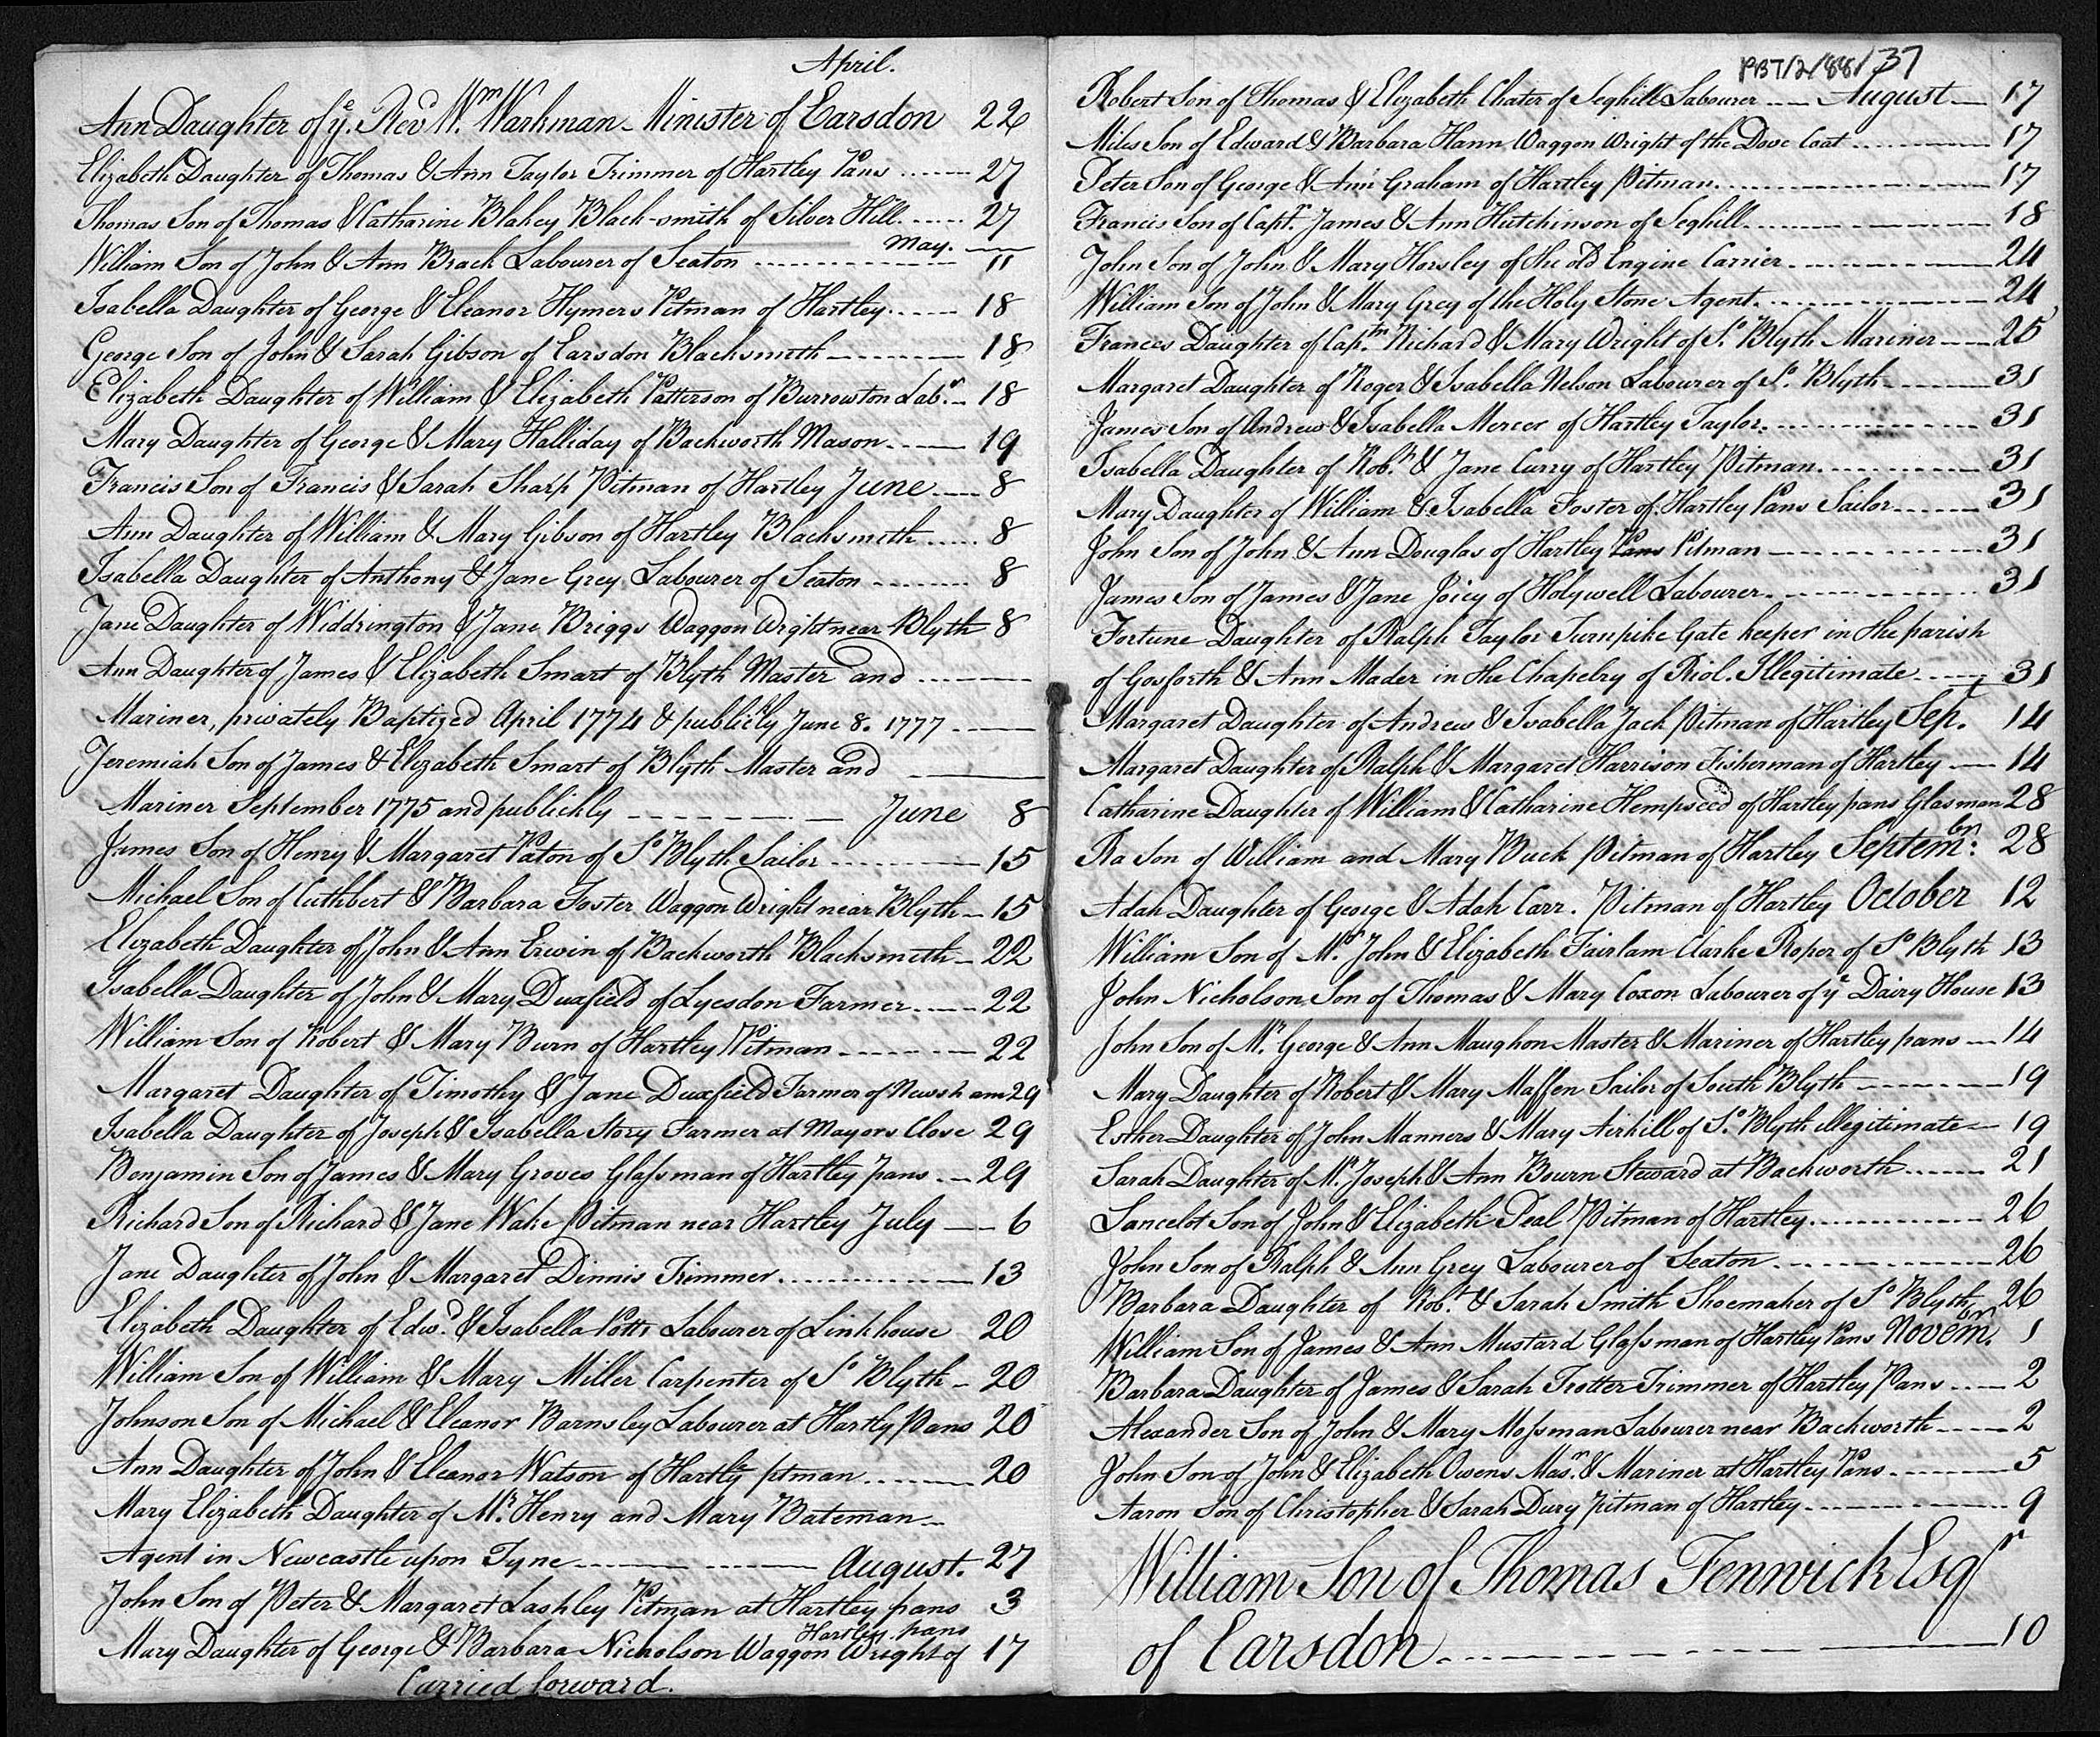 April.
Ann Daughter of ye. Revd Wm. Warkman Minister of Earsdon 22
Elizabeth Daughter of Thomas & Ann Taylor Trimmer of Hartley Pans 27
Thomas Son of Thomas & Catharine Blakey Black-smith of Silver Hill 27
May.
William Son of John & Ann Brack Labourer of Seaton 11
Isabella Daughter of George & Eleanor Hymers Pitman of Hartley 18
George Son of John & Sarah Gibson of Earsdon Blacksmith 18
Elizabeth Daughter of William & Elizabeth Patterson of Burrowton Labr. 18
Mary Daughter of George & Mary Halliday of Backworth Mason 19
Francis Son of Francis & Sarah Sharp Pitman of Hartley June 8
Ann Daughter of William & Mary Gibson of Hartley Blacksmith 8
Isabella Daughter of Anthony & Jane Grey Labourer of Seaton 8
Jane Daughter of Widdrington & Jane Briggs Waggon Wright near Blyth 8
Ann Daughter of James & Elizabeth Smart of Blyth Master and
Mariner, privately Baptized April 1774 & publickly June 8. 1777
Jeremiah Son of James & Elizabeth Smart of Blyth Master and
Mariner September 1775 and publickly June 8
James Son of Henry & Margaret Paton of So Blyth Sailor 15
Michael Son of Cuthbert & Barbara Foster Waggon Wright near Blyth 15
Elizabeth Daughter of John & Ann Erwin of Backworth Blacksmith 22
Isabella Daughter of John & Mary Duxfield of Lyesdon Farmer 22
William Son of Robert & Mary Burn of Hartley Pitman 22
Margaret Daughter of Timothy & Jane Duxfield Farmer of Newsham 29
Isabella Daughter of Joseph & Isabella Story Farmer at Mayors Close 29
Benjamin Son of James & Mary Groves Glassman of Hartley pans 29
Richard Son of Richard & Jane Wake Pitman near Hartley July 6
Jane Daughter of John & Margaret Dinnis Trimmer 13
Elizabeth Daughter of Edwd. & Isabella Potts Labourer of Linkhouse 20
William Son of William & Mary Miller Carpenter of So Blyth 20
Johnson Son of Michael & Eleanor Barnsley Labourer at Hartly Pans 20
Ann Daughter of John & Eleanor Watson of Hartly pitman 20
Mary Elizabeth Daughter of Mr. Henry and Mary Bateman
Agent in Newcastle upon Tyne August. 27
John Son of Peter & Margaret Lashley Pitman at Hartley pans 3
Hartley pans
Mary Daughter of George & Barbara Nicholson Waggon Wright of 17
Carried forward.
PBT/2/88/37
Robert Son of Thomas & Elizabeth Chater of Seghill Labourer August 17
Miles Son of Edward & Barbara Hann Waggon Wright of the Dove Coat 17
Peter Son of George & Ann Graham of Hartley Pitman 17
Francis Son of Captn. James & Ann Hutchinson of Seghill 18
John Son of John & Mary Horsley of the old Engine Carrier 24
William Son of John & Mary Grey of the Holy Stone Agent 24
Frances Daughter of Captn. Richard & Mary Wright of So. Blyth Mariner 25
Margaret Daughter of Roger & Isabella Nelson Labourer of So. Blyth 31
James Son of Andrew & Isabella Mercer of Hartley Taylor 31
Isabella Daughter of Robt. & Jane Curry of Hartley Pitman 31
Mary Daughter of William & Isabella Foster of Hartley Pans Sailor 31
John Son of John & Ann Douglas of Hartley Pans Pitman 31
James Son of James & Jane Joicy of Holywell Labourer 31
Fortune Daughter of Ralph Taylor Turnpike Gate keeper in the parish
of Gosforth & Ann Mader in the Chapelry of Riol. Illegitimate 31
Margaret Daughter of Andrew & Isabella Jack Pitman of Hartley Sept. 14
Margaret Daughter of Ralph & Margaret Harrison Fisherman of Hartley 14
Catharine Daughter of William & Catharine Hempseed of Hartley pans Glasman 28
Ra Son of William and Mary Buck Pitman of Hartley Septembr: 28
Adah Daughter of George & Adah Carr. Pitman of Hartley October 12
William Son of Mr. John & Elizabeth Fairlam Clarke Roper of So Blyth 13
John Nicholson Son of Thomas & Mary Coxon Labourer of ye Dairy House 13
John Son of Mr. George & Ann Maughon Master & Mariner of Hartley pans 14
Mary Daughter of Robert & Mary Maffen Sailor of South Blyth 19
Esther Daughter of John Manners & Mary Airkill of So. Blyth illegitimate 19
Sarah Daughter of Mr. Joseph & Ann Bourn Steward at Backworth 21
Lancelot Son of John & Elizabeth Peal Pitman of Hartley 26
John Son of Ralph & Ann Grey Labourer of Seaton 26
Barbara Daughter of Robt. & Sarah Smith Shoemaker of So Blyth 26
William Son of James & Ann Mustard Glassman of Hartley Pans Novembr. 1
Barbara Daughter of James & Sarah Trotter Trimmer of Hartley Pans 2
Alexander Son of John & Mary Mossman Labourer near Backworth 2
John Son of John & Elizabeth Owens Masr. & Mariner at Hartley Pans 5
Aaron Son of Christopher & Sarah Dury pitman of Hartley 9
William Son of Thomas Fenwick Esqr
of Earsdon 10